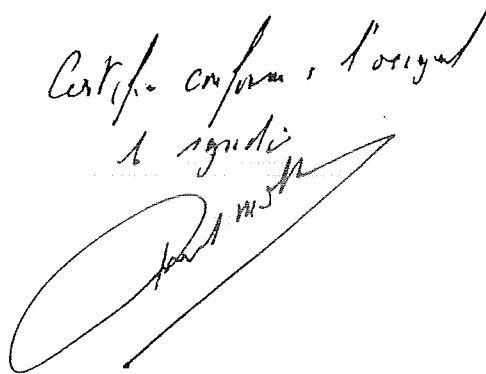 Certifié conforme à l'original
le syndic